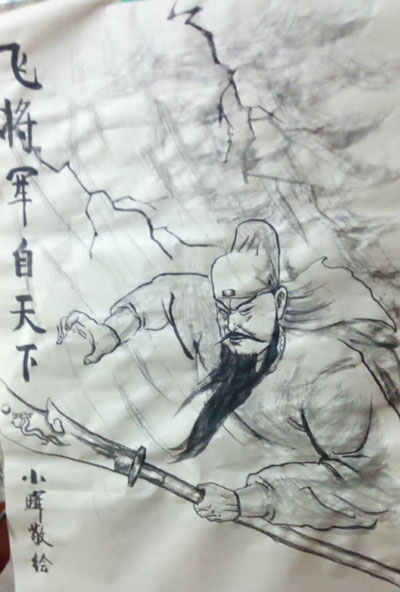 飞将军自天下
小晖敬绘